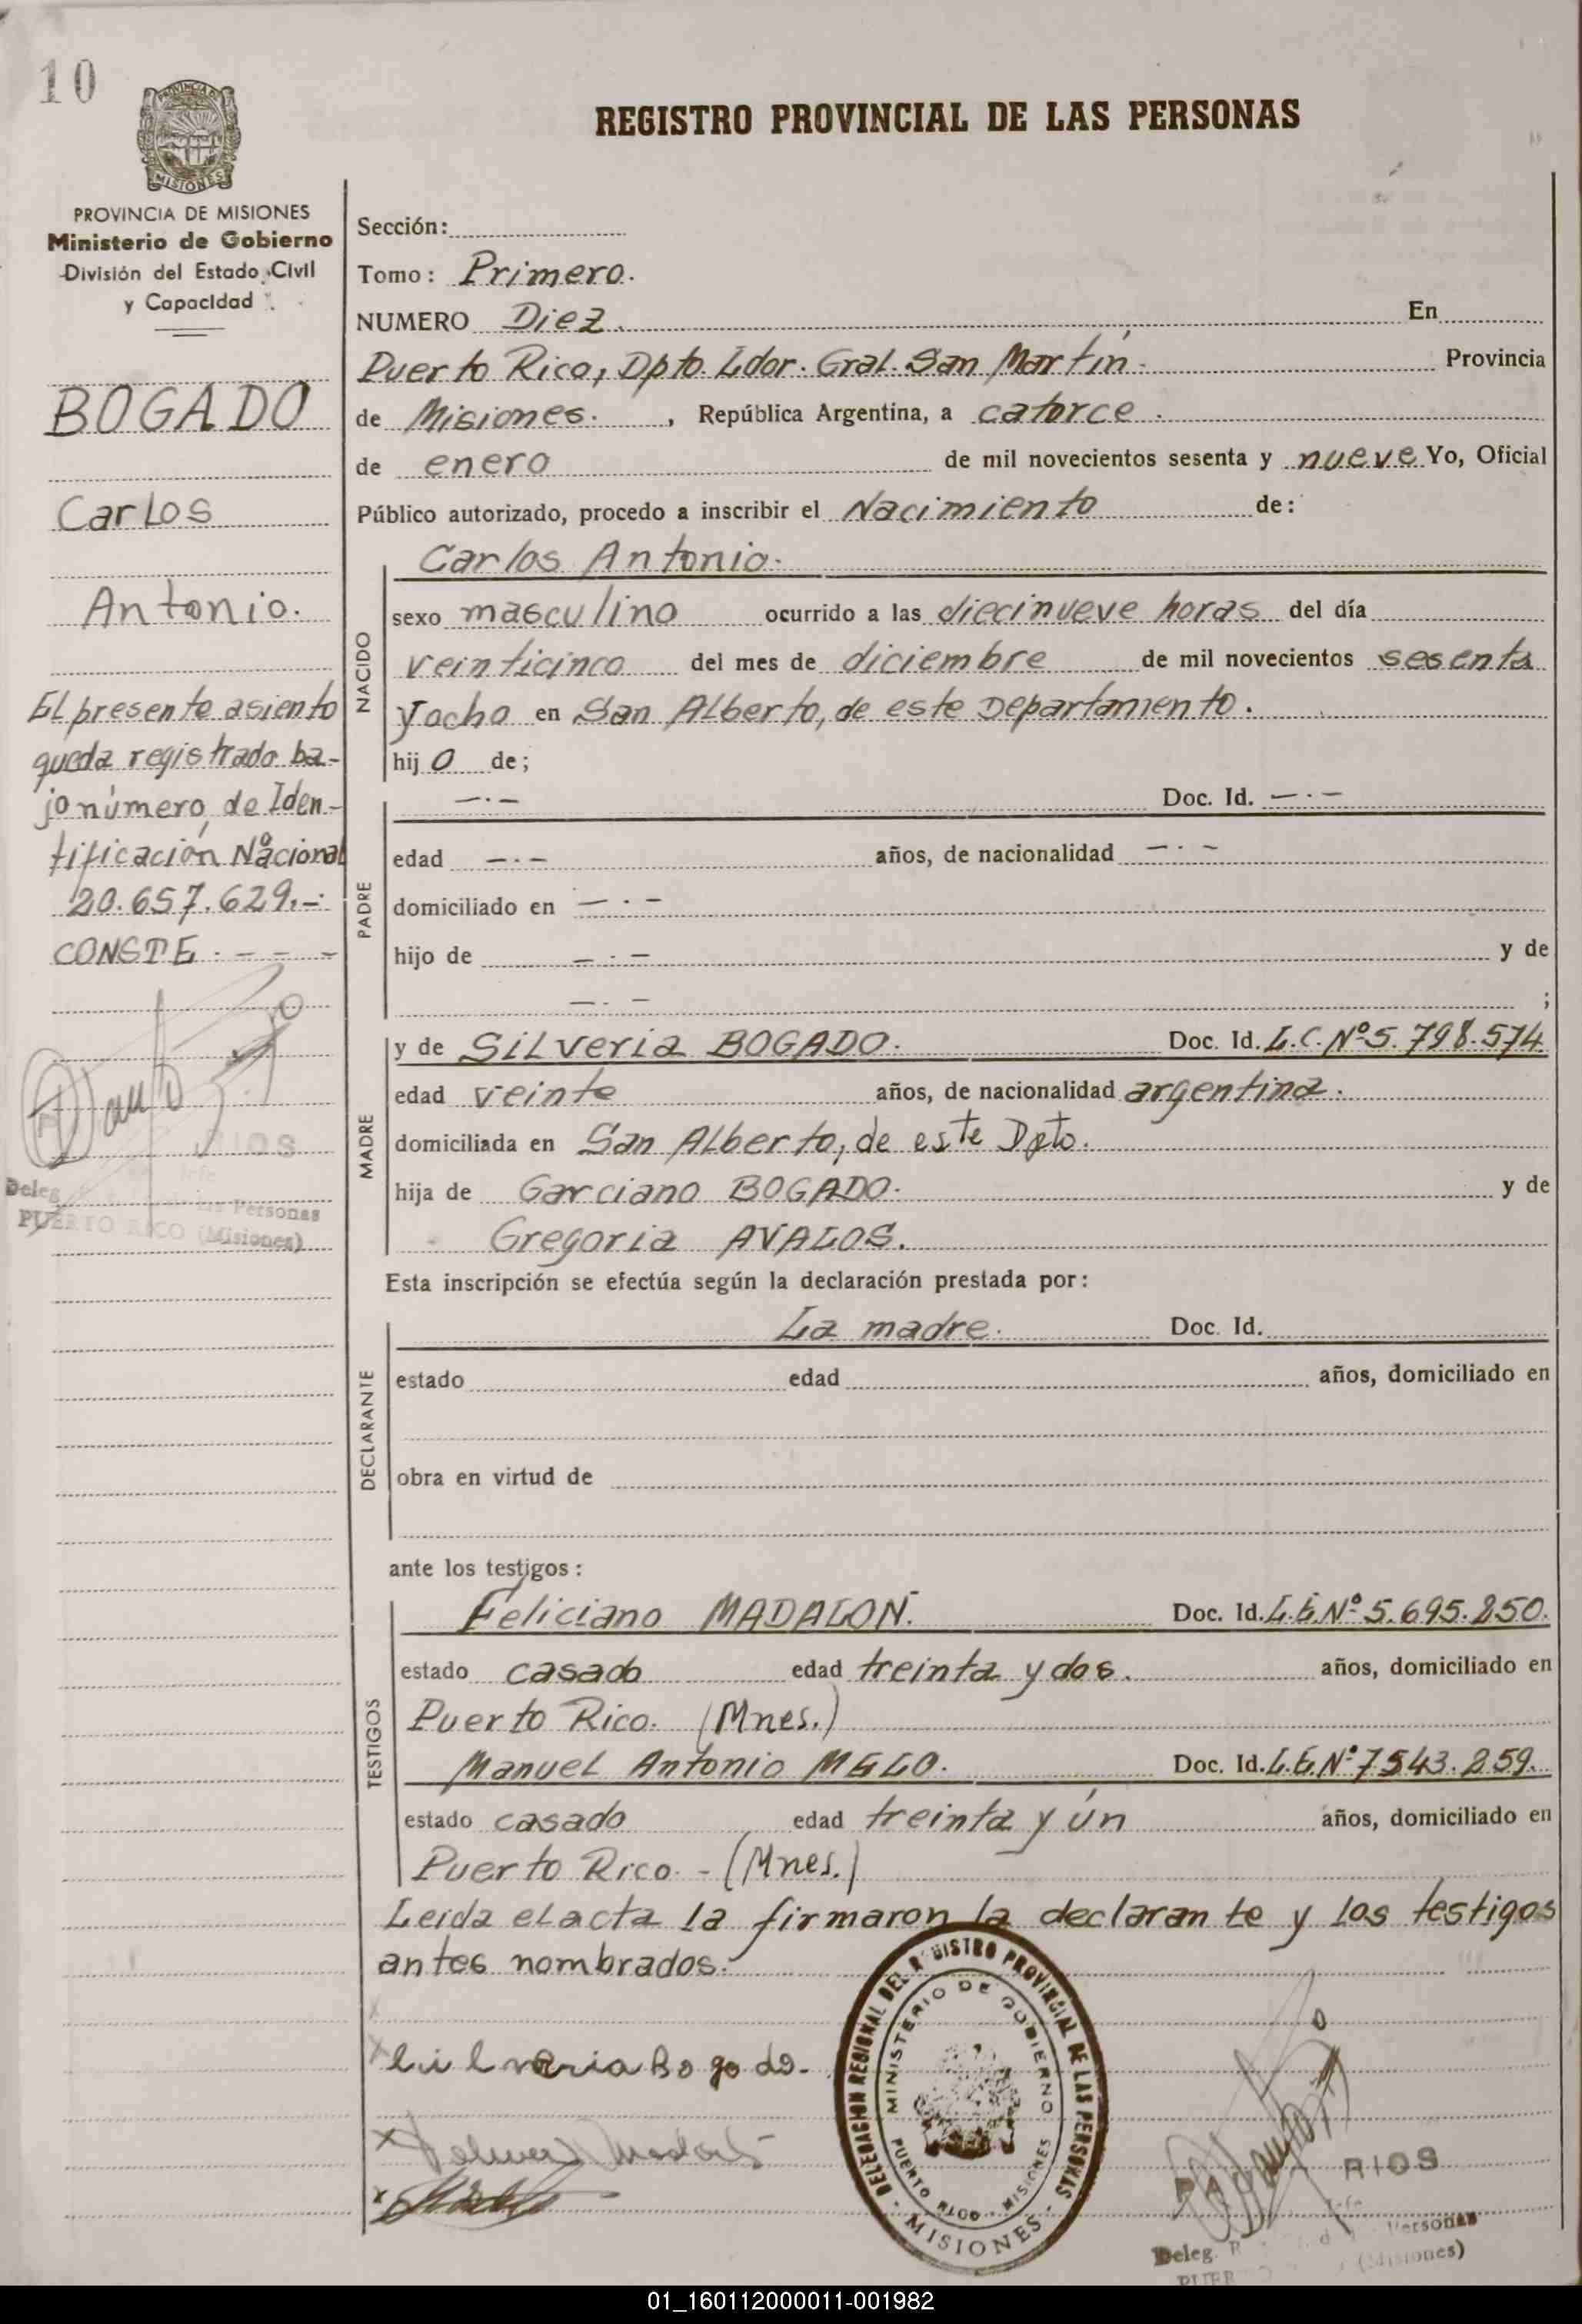 10
PROVINCIA DE MISIONES
Ministerio de Gobierno
División del Estado Civil
y Capacidad
BOGADO
Carlos
Antonio.
El presente asiento
queda registrado ba-
jo número de Iden-
tificación Nacional
Nº 20.657.629.-
CONSTE. - - -
RIOS
Deleg
las Personas
PUERTO RICO (Misiones)
REGISTRO PROVINCIAL DE LAS PERSONAS
Sección:
Tomo: Primero.
NUMERO Diez. En
Puerto Rico, Dpto. Ldor. Gral. San Martín. Provincia
de Misiones. , República Argentina, a catorce.
de enero de mil novecientos sesenta y nueve Yo, Oficial
Público autorizado, procedo a inscribir el Nacimiento de:
NACIDO
Carlos Antonio.
sexo masculino ocurrido a las diecinueve horas del día
veinticinco del mes de diciembre de mil novecientos sesenta
y ocho en San Alberto, de este Departamento.
hij o de;
PADRE
—.— Doc. Id. —.—
edad —.— años, de nacionalidad —.—
domiciliado en —.—
hijo de —.— y de
—.— ;
MADRE
y de Silveria BOGADO. Doc. Id. L.C. Nº 5.798.574
edad veinte años, de nacionalidad argentina.
domiciliada en San Alberto, de este Dpto.
hija de Garciano BOGADO. y de
Gregoria AVALOS.
Esta inscripción se efectúa según la declaración prestada por:
DECLARANTE
La madre. Doc. Id.
estado edad años, domiciliado en
obra en virtud de
ante los testigos:
TESTIGOS
Feliciano MADALON. Doc. Id. L.E. Nº 5.695.850.
estado casado edad treinta y dos. años, domiciliado en
Puerto Rico. (Mnes.)
Manuel Antonio MELO. Doc. Id. L.E. Nº 7543.859.
estado casado edad treinta y ún años, domiciliado en
Puerto Rico. - (Mnes.)
Leída el acta la firmaron la declarante y los testigos
antes nombrados.
DELEGACION REGIONAL DEL REGISTRO PROVINCIAL DE LAS PERSONAS
MINISTERIO DE GOBIERNO
PUERTO RICO - MISIONES
- MISIONES -
RIOS
Deleg. Personas
(Misiones)
01_160112000011-001982